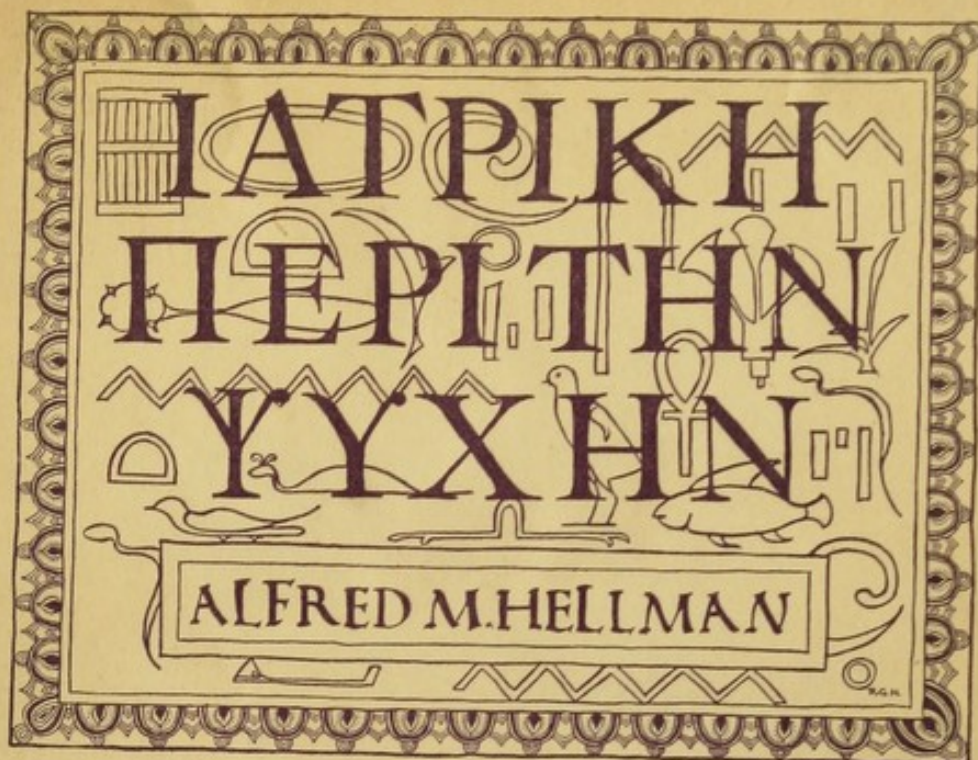 ΙΑΤΡΙΚΗ
ΠΕΡΙ ΤΗΝ
ΨΥΧΗΝ
ALFRED M. HELLMAN
R.G.H.